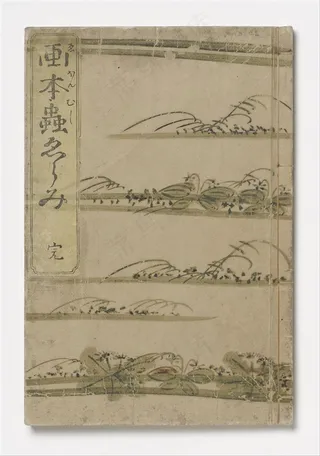 ゑほんむし
画本蟲ゑらみ
完